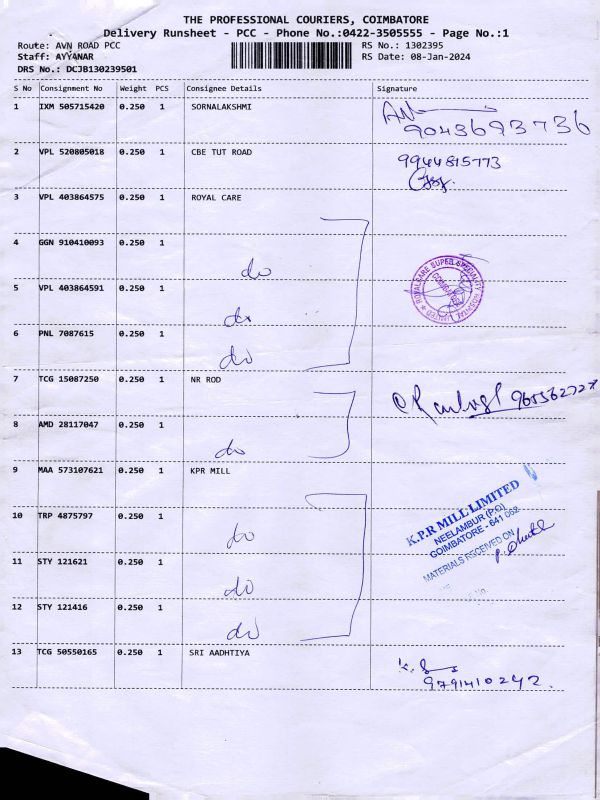 THE PROFESSIONAL COURIERS, COIMBATORE
Delivery Runsheet - PCC - Phone No.:0422-3505555 - Page No.:1
Route: AVN ROAD PCC
RS No.: 1302395
Staff: AYYANAR
RS Date: 08-Jan-2024
DRS No.: DCJB130239501
S No Consignment No Weight PCS Consignee Details Signature
1 IXM 505715420 0.250 1 SORNALAKSHMI
9043693736
2 VPL 520805018 0.250 1 CBE TUT ROAD 9944815773
3 VPL 403864575 1 0.250 1 ROYAL CARE
4 GGN 910410093 0.250 1 do
5 VPL 403864591 0.250 1 do
ROYALCARE SUPER SPECIALITY HOSPITAL LIMITED
6 PNL 7087615 0.250 1 do
7 TCG 15087250 0.250 1 NR ROD
8 AMD 28117047 0.250 1 do
9 MAA 573107621 0.250 1 KPR MILL
K.P.R MILL LIMITED
NEELAMBUR (P.O)
COIMBATORE - 641 062
MATERIALS RECEIVED ON
10 TRP 4875797 0.250 1 do
11 STY 121621 0.250 1 do
12 STY 121416 0.250 1 do
13 TCG 50550165 0.250 1 SRI AADHTIYA
9791410242.